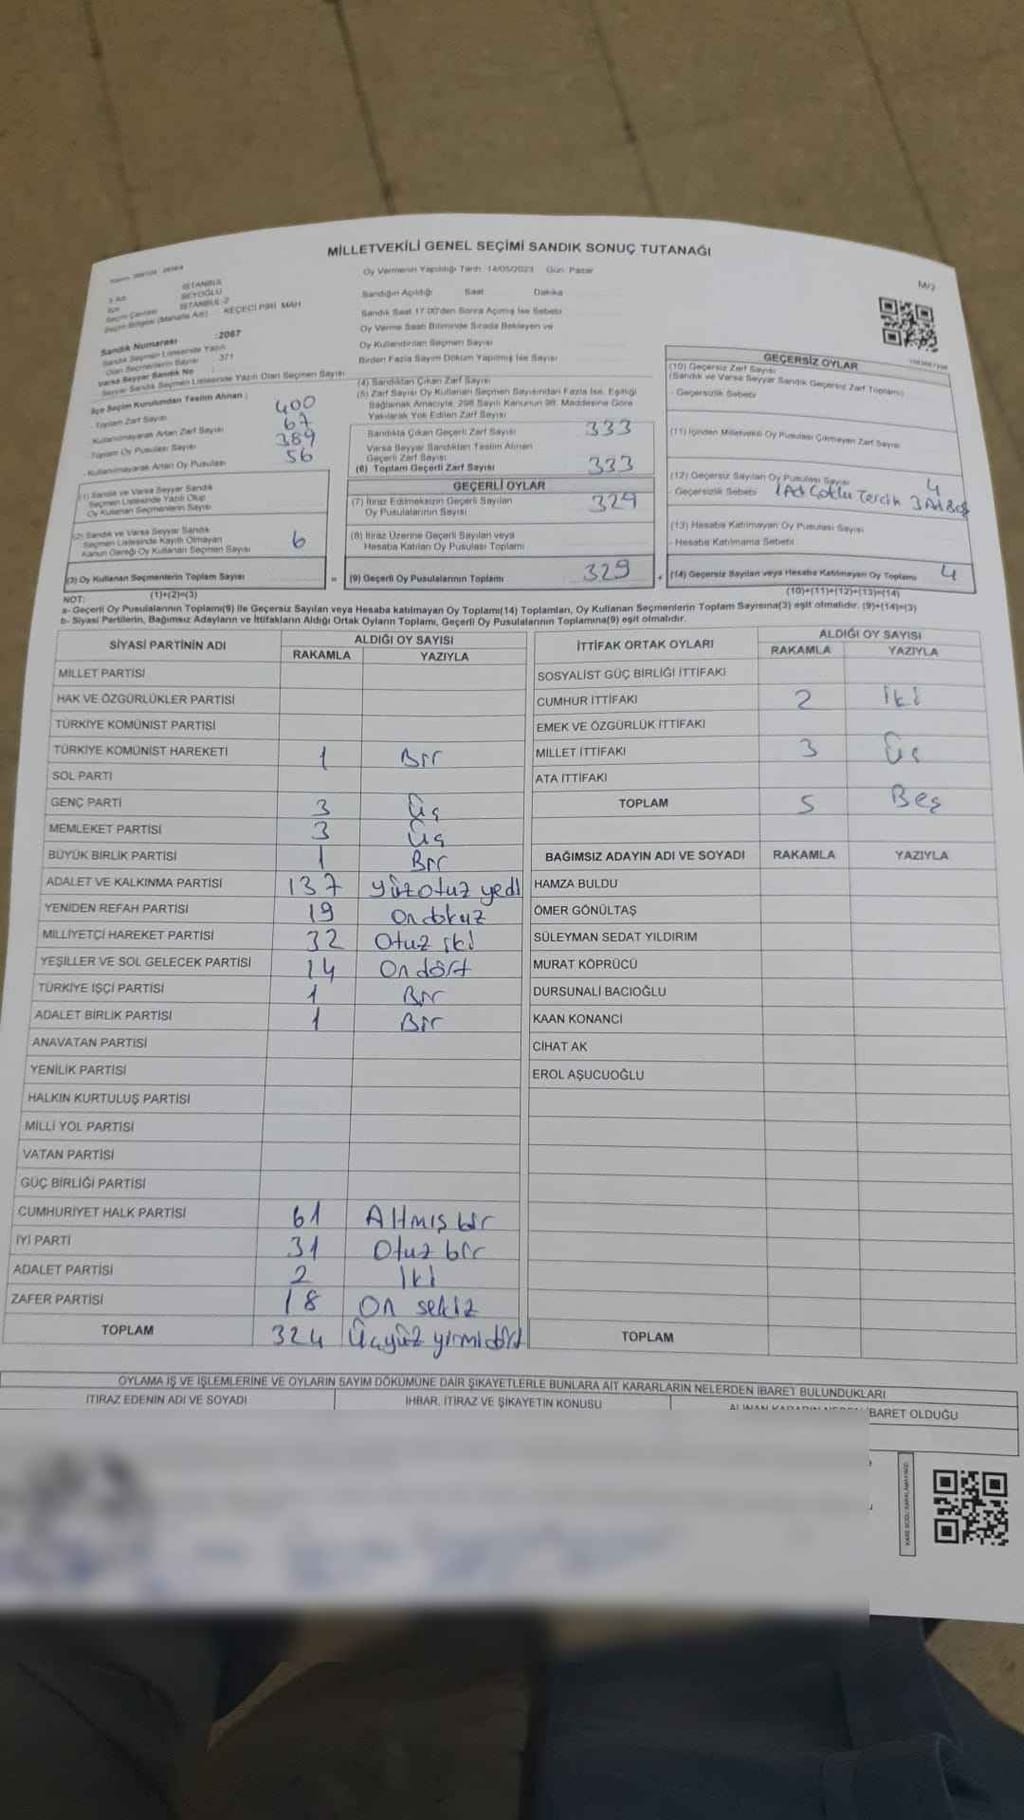 MİLLETVEKİLİ GENEL SEÇİMİ SANDIK SONUÇ TUTANAĞI
Oy Vermenin Yapıldığı Tarih 14/05/2023 Gün Pazar
M/3
İSTANBUL
BEYOĞLU
İSTANBUL-2
KEÇECİ PİRİ MAH
Sandık Numarası :2087
Sandık Seçmen Listesinde Yazılı
Olan Seçmenlerin Sayısı 371
Varsa Seyyar Sandık No
Seyyar Sandık Seçmen Listesinde Yazılı Olan Seçmen Sayısı
Sandığın Açıldığı Saat Dakika
Sandık Saat 17.00'den Sonra Açılmış İse Sebebi
Oy Verme Saati Bitiminde Sırada Bekleyen ve
Oy Kullandırılan Seçmen Sayısı
Birden Fazla Sayım Döküm Yapılmış İse Sayısı
İlçe Seçim Kurulundan Teslim Alınan :
Toplam Zarf Sayısı 400
Kullanılmayarak Artan Zarf Sayısı 67
Toplam Oy Pusulası Sayısı 389
Kullanılmayarak Artan Oy Pusulası 56
(1) Sandık ve Varsa Seyyar Sandık
Seçmen Listesinde Yazılı Olup
Oy Kullanan Seçmenlerin Sayısı
(2) Sandık ve Varsa Seyyar Sandık
Seçmen Listesinde Kayıtlı Olmayan
Kanun Gereği Oy Kullanan Seçmen Sayısı 6
(3) Oy Kullanan Seçmenlerin Toplam Sayısı
(1)+(2)=(3)
(4) Sandıktan Çıkan Zarf Sayısı
(5) Zarf Sayısı Oy Kullanan Seçmen Sayısından Fazla İse, Eşitliği
Sağlamak Amacıyla, 298 Sayılı Kanunun 98. Maddesine Göre
Yakılarak Yok Edilen Zarf Sayısı
Sandıkta Çıkan Geçerli Zarf Sayısı 333
Varsa Seyyar Sandıktan Teslim Alınan
Geçerli Zarf Sayısı
(6) Toplam Geçerli Zarf Sayısı 333
GEÇERLİ OYLAR
(7) İtiraz Edilmeksizin Geçerli Sayılan
Oy Pusulalarının Sayısı 329
(8) İtiraz Üzerine Geçerli Sayılan veya
Hesaba Katılan Oy Pusulası Toplamı
= (9) Geçerli Oy Pusulalarının Toplamı 329
GEÇERSİZ OYLAR
(10) Geçersiz Zarf Sayısı
(Sandık ve Varsa Seyyar Sandık Geçersiz Zarf Toplamı)
- Geçersizlik Sebebi
(11) İçinden Milletvekili Oy Pusulası Çıkmayan Zarf Sayısı
(12) Geçersiz Sayılan Oy Pusulası Sayısı 4
Geçersizlik Sebebi 1 Ad Çoklu Tercih 3 Ad Boş
(13) Hesaba Katılmayan Oy Pusulası Sayısı
- Hesaba Katılmama Sebebi
+ (14) Geçersiz Sayılan veya Hesaba Katılmayan Oy Toplamı 4
(10)+(11)+(12)+(13)=(14)
NOT:
a- Geçerli Oy Pusulalarının Toplamı(9) ile Geçersiz Sayılan veya Hesaba katılmayan Oy Toplamı(14) Toplamları, Oy Kullanan Seçmenlerin Toplam Sayısına(3) eşit olmalıdır. (9)+(14)=(3)
b- Siyasi Partilerin, Bağımsız Adayların ve İttifakların Aldığı Ortak Oyların Toplamı, Geçerli Oy Pusulalarının Toplamına(9) eşit olmalıdır.
SİYASİ PARTİNİN ADI ALDIĞI OY SAYISI
RAKAMLA YAZIYLA
MİLLET PARTİSİ
HAK VE ÖZGÜRLÜKLER PARTİSİ
TÜRKİYE KOMÜNİST PARTİSİ
TÜRKİYE KOMÜNİST HAREKETİ 1 Bir
SOL PARTİ
GENÇ PARTİ 3 Üç
MEMLEKET PARTİSİ 3 Üç
BÜYÜK BİRLİK PARTİSİ 1 Bir
ADALET VE KALKINMA PARTİSİ 137 Yüzotuz yedi
YENİDEN REFAH PARTİSİ 19 On dokuz
MİLLİYETÇİ HAREKET PARTİSİ 32 Otuz iki
YEŞİLLER VE SOL GELECEK PARTİSİ 14 On dört
TÜRKİYE İŞÇİ PARTİSİ 1 Bir
ADALET BİRLİK PARTİSİ 1 Bir
ANAVATAN PARTİSİ
YENİLİK PARTİSİ
HALKIN KURTULUŞ PARTİSİ
MİLLİ YOL PARTİSİ
VATAN PARTİSİ
GÜÇ BİRLİĞİ PARTİSİ
CUMHURİYET HALK PARTİSİ 61 Altmış bir
İYİ PARTİ 31 Otuz bir
ADALET PARTİSİ 2 İki
ZAFER PARTİSİ 18 On sekiz
TOPLAM 324 Üçyüz yirmidört
İTTİFAK ORTAK OYLARI ALDIĞI OY SAYISI
RAKAMLA YAZIYLA
SOSYALİST GÜÇ BİRLİĞİ İTTİFAKI
CUMHUR İTTİFAKI 2 İki
EMEK VE ÖZGÜRLÜK İTTİFAKI
MİLLET İTTİFAKI 3 Üç
ATA İTTİFAKI
TOPLAM 5 Beş
BAĞIMSIZ ADAYIN ADI VE SOYADI RAKAMLA YAZIYLA
HAMZA BULDU
ÖMER GÖNÜLTAŞ
SÜLEYMAN SEDAT YILDIRIM
MURAT KÖPRÜCÜ
DURSUNALİ BACIOĞLU
KAAN KONANCİ
CİHAT AK
EROL AŞUCUOĞLU
TOPLAM
OYLAMA İŞ VE İŞLEMLERİNE VE OYLARIN SAYIM DÖKÜMÜNE DAİR ŞİKAYETLERLE BUNLARA AİT KARARLARIN NELERDEN İBARET BULUNDUKLARI
İTİRAZ EDENİN ADI VE SOYADI İHBAR, İTİRAZ VE ŞİKAYETİN KONUSU İBARET OLDUĞU